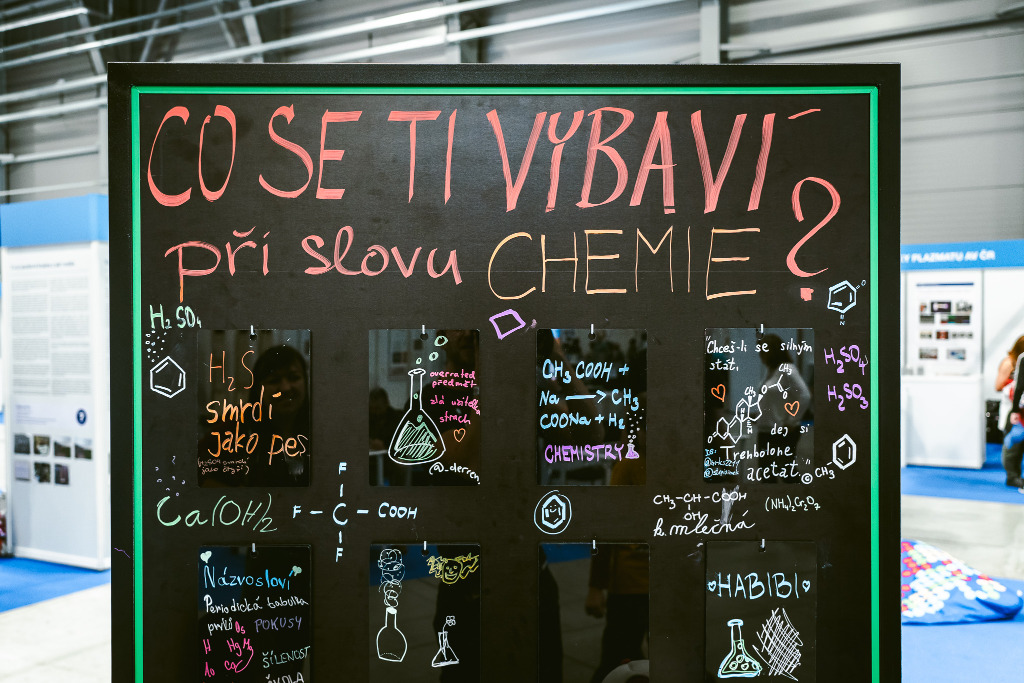 CO SE TI VYBAVÍ
při slovu CHEMIE?
H₂SO₄
H₂S
smrdí
jako pes
overrated
předmět
zlá učitelka
strach
CH₃COOH +
Na → CH₃
COONa + H₂
CHEMISTRY
"Chceš-li se silným
stát,
CH₃
dej si
Trenbolone
acetát."
H₂SO₄
H₂SO₃
CH₃
Ca(OH)₂
F
F — C — COOH
F
CH₃-CH-COOH
OH
k. mléčná
(NH₄)₂Cr₂O₇
Názvosloví
Periodická tabulka
prvků
Os
POKUSY
H Hg Mg
Au Ca
ŠÍLENOST
HABIBI
KY PLAZMATU AV ČR